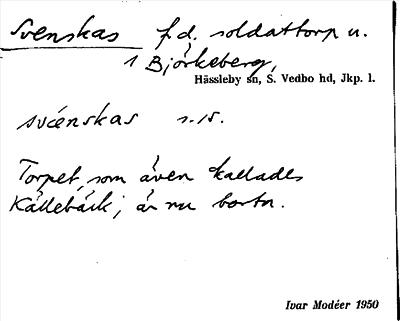 Svenskas f.d. soldattorp u.
1 Björkeberg,
Hässleby sn, S. Vedbo hd, Jkp. l.
svénskas s. 15.
Torpet, som även kallades
Källebäck, är nu borta.
Ivar Modéer 1950